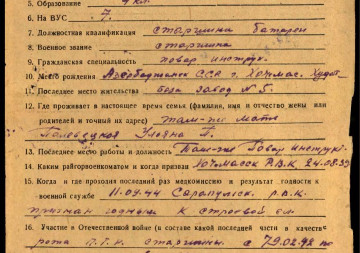 5. Образование 4 кл.
6. На ВУС 7.
7. Должностная квалификация старшина батареи
8. Военное звание старшина
9. Гражданская специальность повар инструк.
10. Место рождения Азербаджанск ССР г. Хачмас. Худат
11. Последнее место жительства База завод № 5.
12. Где проживает в настоящее время семья (фамилия, имя и отчество жены или
родителей и точный их адрес) там-же мать
Ульяна П.
13. Последнее место работы и должность Там-же повар инструк.
14. Каким райгорвоенкоматом и когда призван Р.В.К. 24.08.39
15. Когда и где проходил последний раз медкомиссию и результат годности к
военной службе 11.09.44 Сарапульск. р.в.к.
признан годным к строевой сл
16. Участие в Отечественной войне (в составе какой последней части в качестве
рота П.Т.Р. старшины. с 79.02.42 по